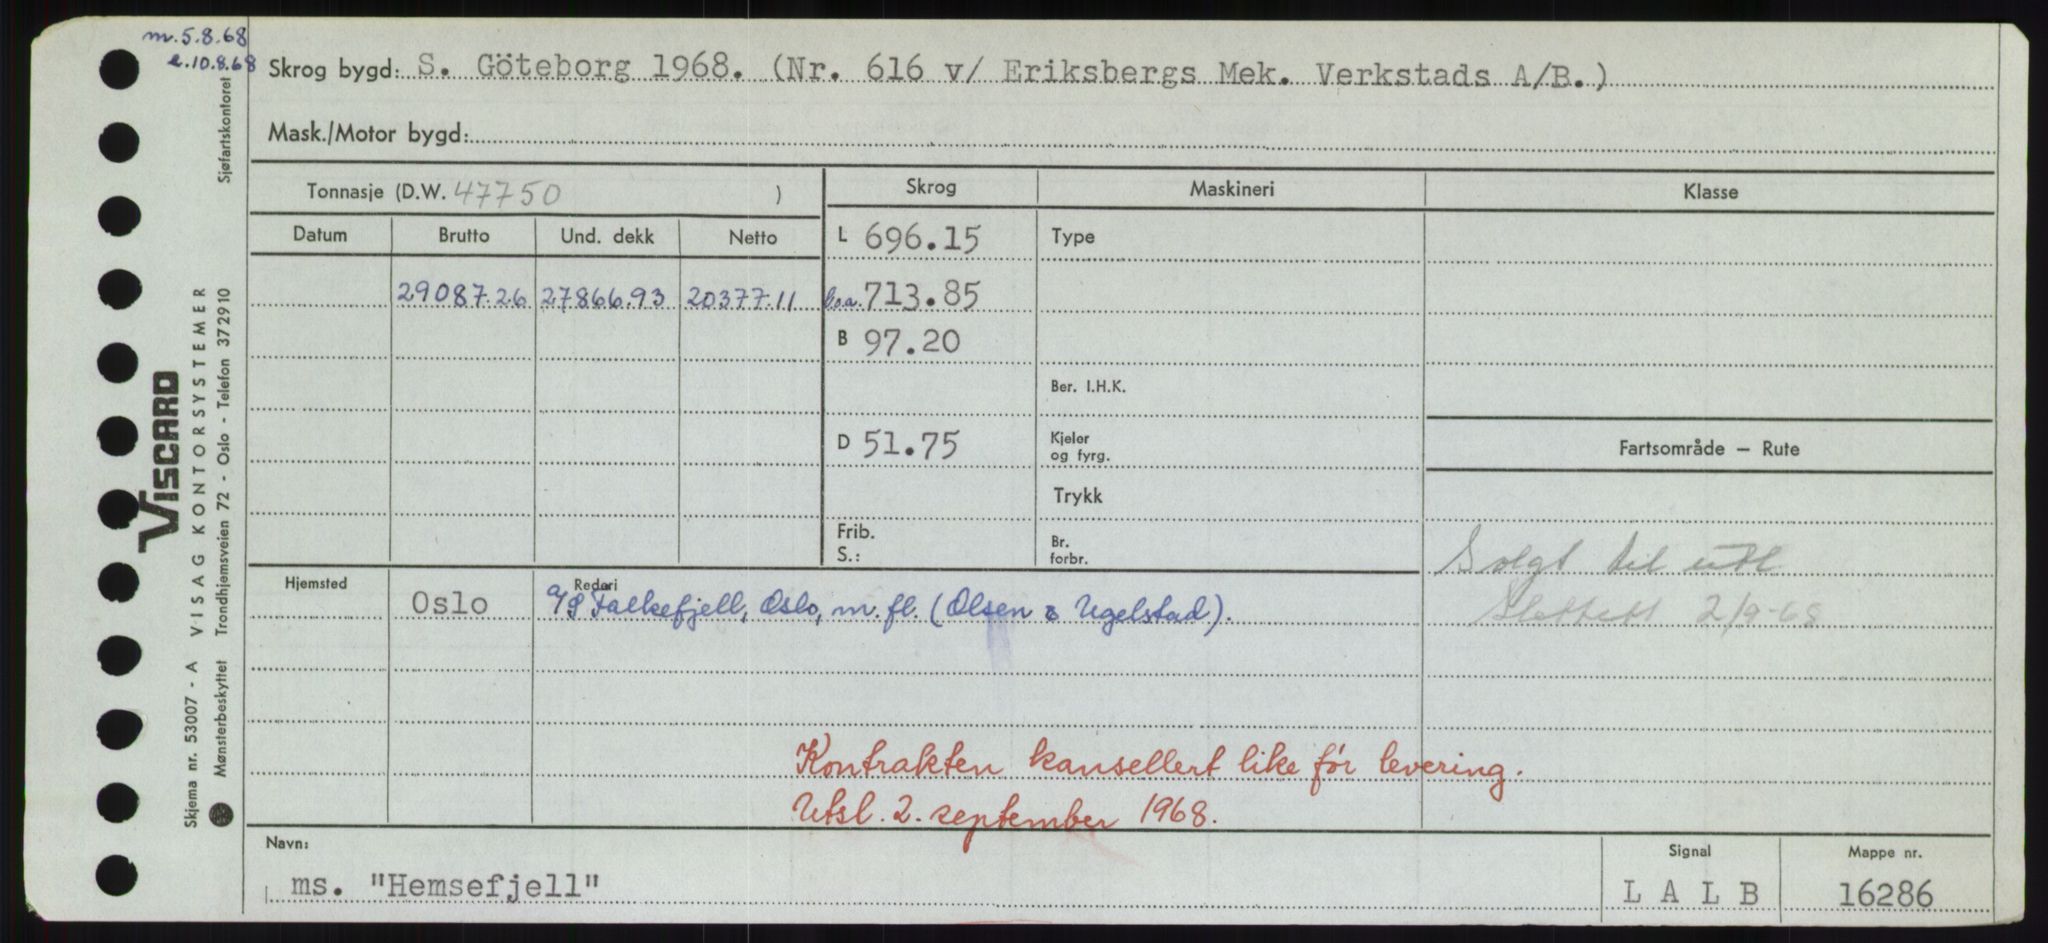 m. 5.8.68
e. 10.8.68
Skrog bygd: S. Göteborg 1968. (Nr. 616 v/ Eriksbergs Mek. Verkstads A/B.)
Mask./Motor bygd:
Tonnasje (D.W. 47750 )
Skrog
Maskineri
Klasse
Datum
Brutto
Und. dekk
Netto
L 696.15
Type
29087.26
27866.93
20377.11
l.o.a. 713.85
B 97.20
Ber. I.H.K.
D 51.75
Kjeler
og fyrg.
Fartsområde – Rute
Trykk
Frib.
S.:
Br.
forbr.
Solgt til utl
Slettet 2/9-68
Hjemsted
Rederi
Oslo
A/S Falkefjell, Oslo, m. fl. (Olsen & Ugelstad).
Kontrakten kansellert like før levering.
Utsl. 2. september 1968.
Navn:
ms. "Hemsefjell"
Signal
L A L B
Mappe nr.
16286
Viscard
VISAG KONTORSYSTEMER
Skjema nr. 53007 - A
Mønsterbeskyttet
Trondhjemsveien 72 - Oslo - Telefon 37 29 10
Sjøfartskontoret